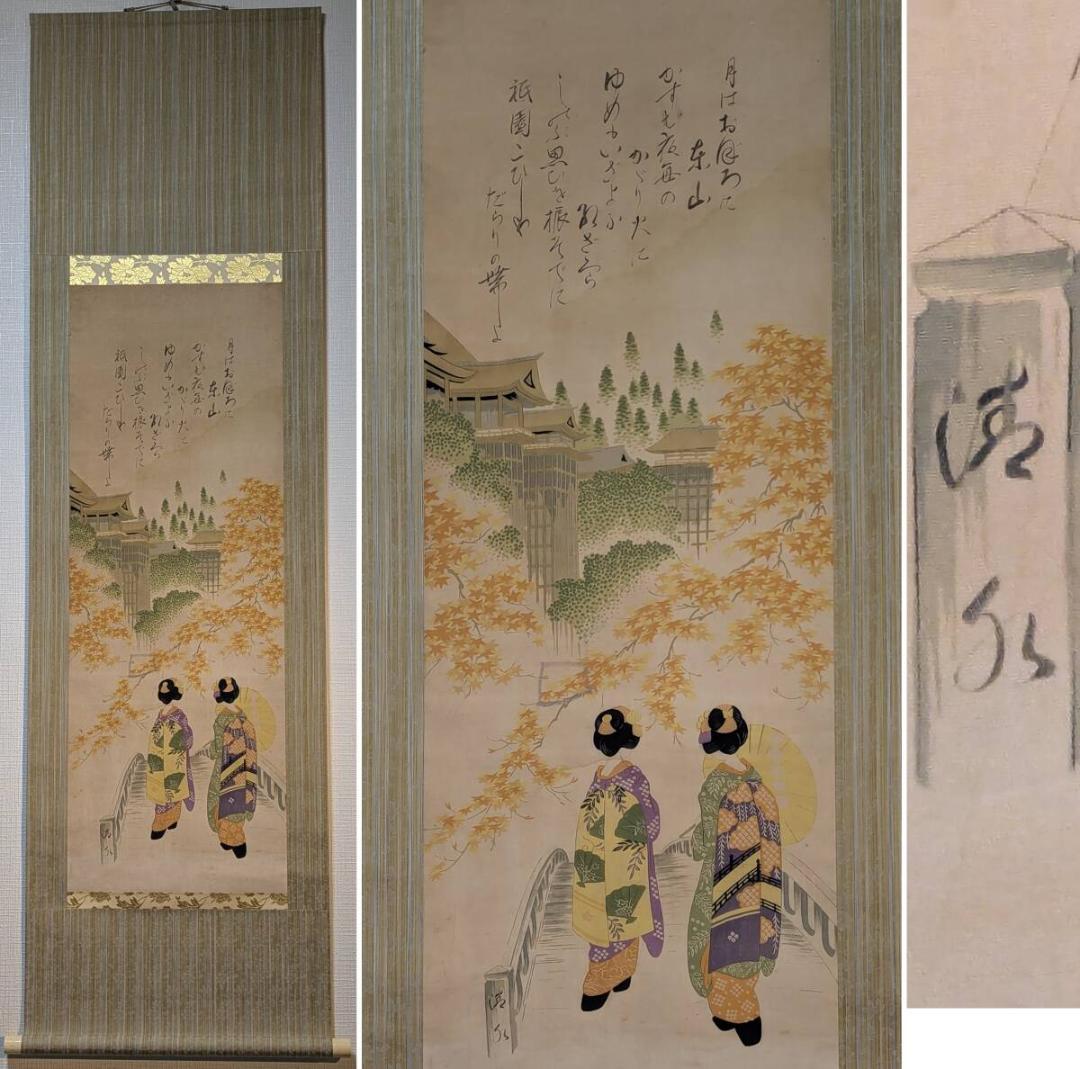 月はおぼろに
東山
かすむ夜毎の
かゞり火に
ゆめもいざよふ
紅ざくら
しのぶ思ひを振そでに
祇園こひしや
だらりの帯よ
清水
月はおぼろに
東山
かすむ夜毎の
かゞり火に
ゆめもいざよふ
紅ざくら
しのぶ思ひを振そでに
祇園こひしや
だらりの帯よ
清水
清水